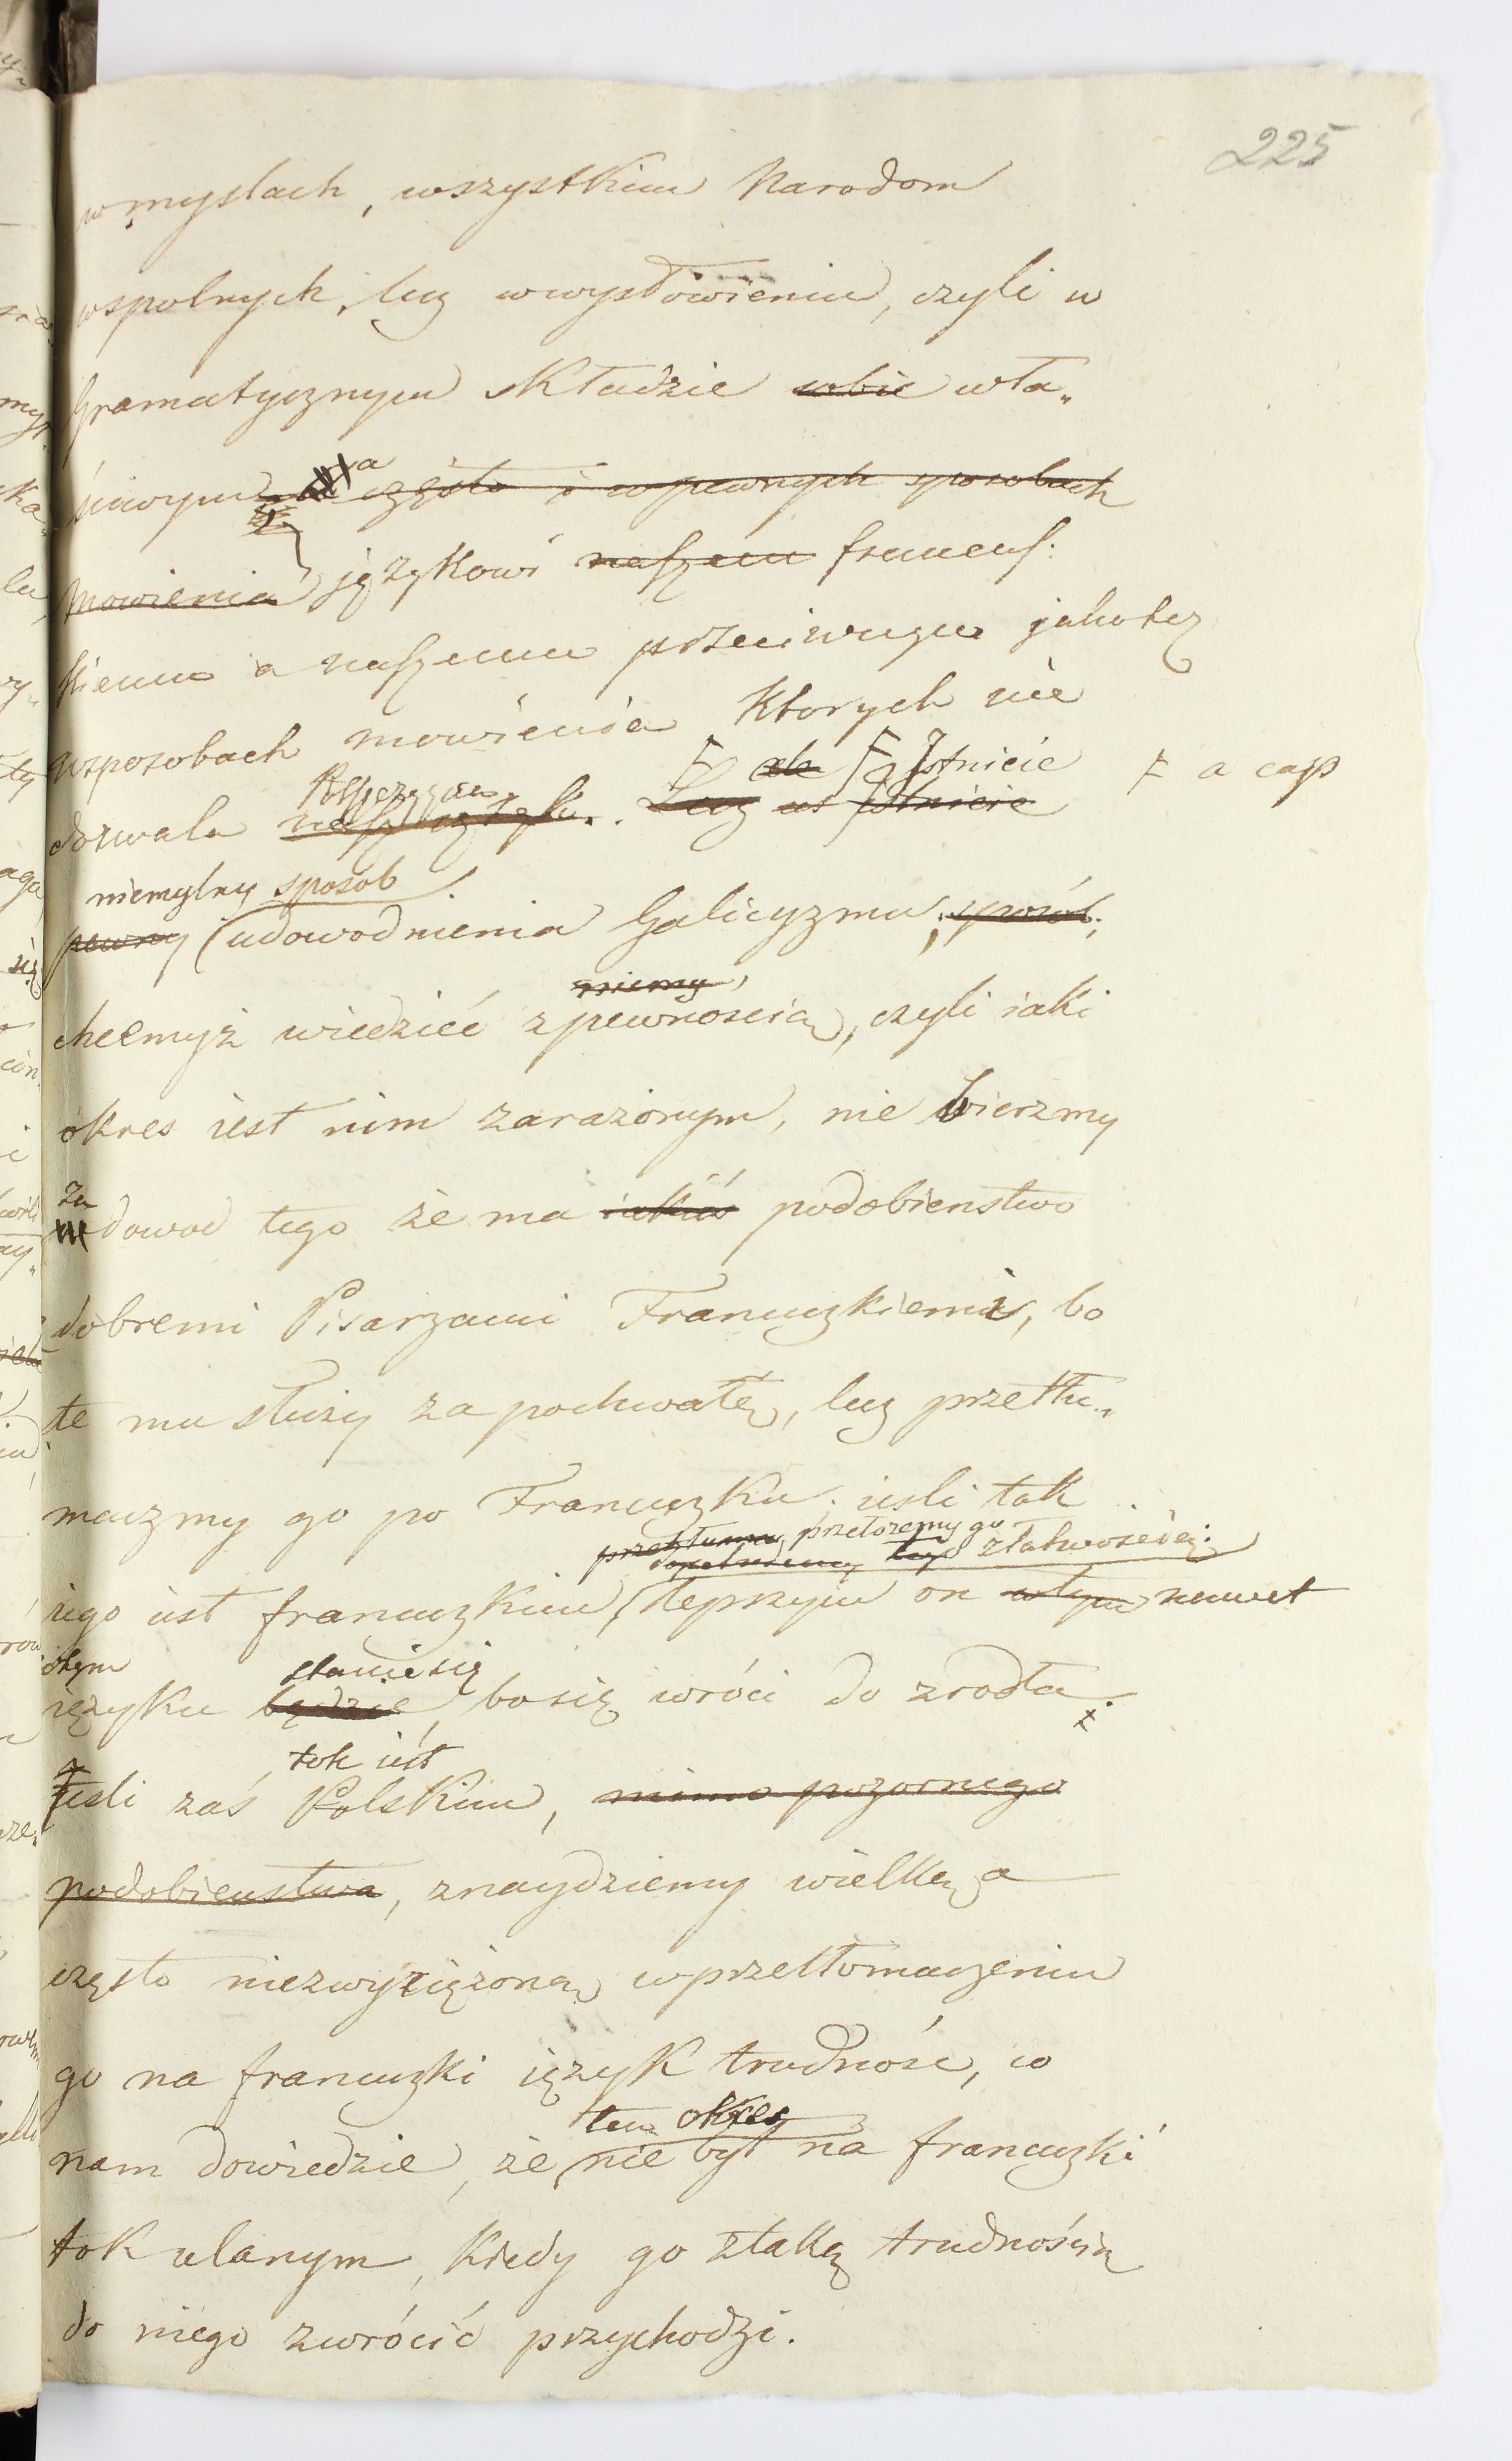 225
w mysłach, wszystkim Narodom
wspolnych, lecz w wysłowieniu, czyli w
Gramatycznym składzie sobie wła„
ściwym a często i w pewnych sposobach
mowienia językowi naszemu francus:
kiemu a naszemu przeciwnym jako też
w sposobach mowienia ktorych nie
Polszczyzna ale Istnieie
dozwala nasz język. Lecz Istnieie
F a cap
niemylny sposób
pewny udowodnienia Galicyzmu, sposób,
miemy
chcemyż wiedzieć z pewnością, czyli iaki
okres iest nim zarażonym, nie bierzmy
za
dowod tego że ma iakieś podobienstwo
dobremi Pisarzami Francuzkiemi, bo
te mu służy za pochwałę, lecz przetłu„
maczmy go po Francuzku. ieśli tok
przetłuma przełożemy go
z łatwością:
iego iest francuzkim, lepszym on w tym nawet
w tym stanie się
ięzyku będzie, bo się wróci do zrodła.
tok iest
Ieśli zaś Polskim, mimo pozornego
podobieństwa, znaydziemy wielką a
często niezwyciężoną w przetłomaczeniu
go na francuzki ięzyk trudność, co
ten okres
nam dowiedzie, że nie był na francuzki
tok ulanym, kiedy go z taką trudnością
do niego zwrócić przychodzi.